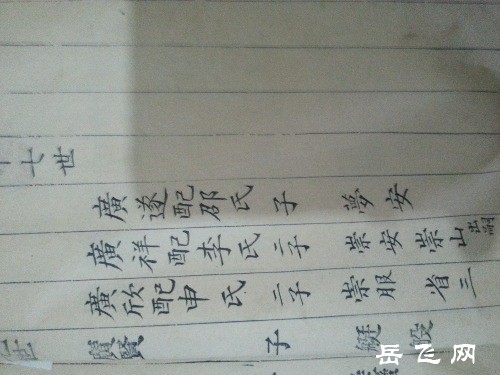 七世
廣遂配邵氏 子 夢安
廣祥配李氏 二子 崇安 崇山出嗣
廣欣配申氏 二子 崇服 省三
世 賢 子
岳飞网